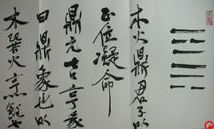 木火鼎君子以
正位凝命
鼎元吉亨彖
曰鼎象也以
木巽火亨飪